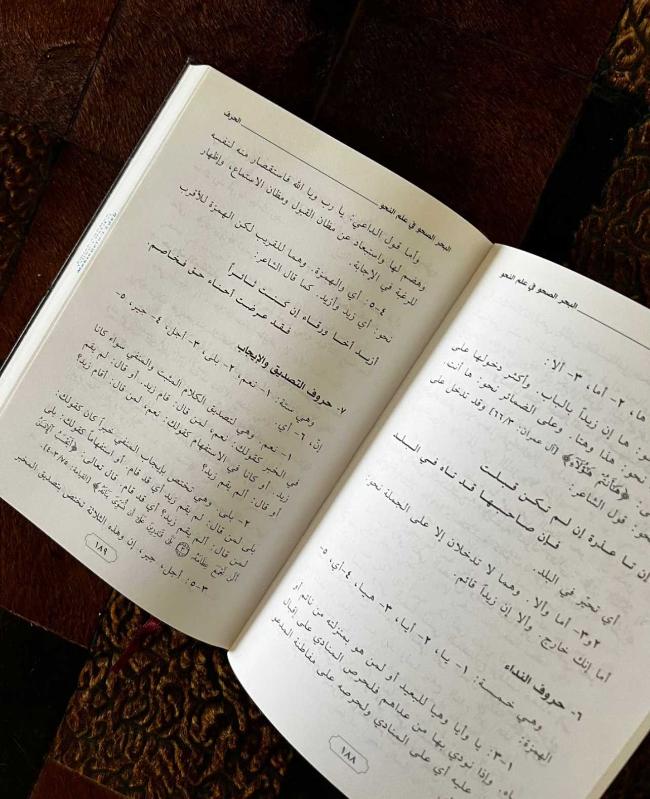 البحر الصحو في علم النحو
ها، ٢- أما، ٣- ألا:
نحو: ها إن زيداً بالباب. وأكثر دخولها على
نحو: هذا وهنا. وعلى الضمائر نحو: ها أنت.
﴿هَٰٓأَنتُمْ هَٰٓؤُلَآءِ﴾ [آل عمران: ٦٦/٣] وقد تدخل على
نحو: قول الشاعر:
إن تا عـذرة إن لـم تـكـن قـبـلـت
فـإن صـاحـبـهـا قـد تـاه فـي الـبـلـد
أي تحيّر في البلد.
٢و٣- أما وألا. وهما لا تدخلان إلا على الجملة نحو:
أما إنك خارج. وألا إن زيداً قائم.
٦- حروف النداء
وهي خمسة: ١- يـا، ٢- أيـا، ٣- هيـا، ٤-أي، ٥-
الهمزة:
١-٣: يا وأيا وهيا للبعيد أو لمن هو بمنزلته من نائم أو
ساه. وإذا نودي بها من عداهم فلحرص المنادي على إقبال
عليه أي على المنادي ولحرصه على مفاطنة المدعو
١٨٨
البحر الصحو في علم النحو
الحرف
وأما قول الداعي: يا رب ويا الله فاستقصار منه لنفسه
وهضم لها واستبعاد عن مظان القبول ومظان الاستماع، وإظهار
للرغبة في الإجابة.
٤-٥: أي والهمزة. وهما للقريب لكن الهمزة للأقرب
نحو: أي زيد وأزيد. كما قال الشاعر:
أزيـد أخـا ورقـاء إن كـنـت ثـائـراً
فـقـد عـرضـت أحـنـاء حـق فـخـاصـم
٧- حروف التصديق والإيجاب
وهي ستة: ١- نعم، ٢- بلى، ٣- أجل، ٤- جير، ٥-
إنّ، ٦- أي.
١- نعم. وهي لتصديق الكلام المثبت والمنفي سواء كانا
في الخبر كقولك: نعم، لمن قال: قام زيد. أو قال: لم يقم
زيد. أو كانا في الاستفهام كقولك: نعم، لمن قال: أقام زيد؟
أو قال: ألم يقم زيد؟
٢- بلى. وهي تختص بإيجاب المنفي خبراً كان كقولك:
بلى لمن قال: لم يقم زيد أي قد قام. أو استفهاماً كقولك: بلى
لمن قال: ألم يقم زيد؟ أي قد قام. قال تعالى: ﴿أَيَحْسَبُ ٱلْإِنسَٰنُ
أَلَّن نَّجْمَعَ عِظَامَهُۥ ۝ بَلَىٰ قَٰدِرِينَ عَلَىٰٓ أَن نُّسَوِّىَ بَنَانَهُۥ﴾ [القيامة: ٣/٧٥-٤]
٣-٥: أجل، جير، إن وهذه الثلاثة تختص بتصديق المخبر
١٨٩